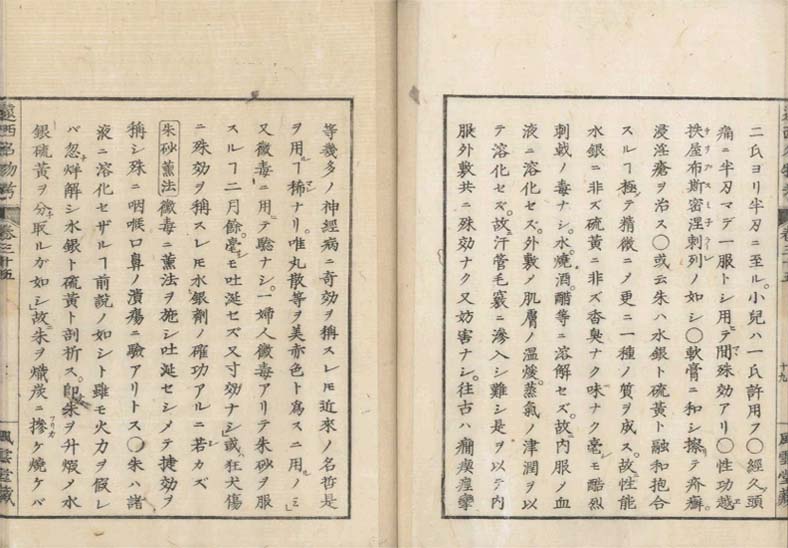 遠西名物考 卷三十五 十九 風雲堂藏
二氏ヨリ半刃ニ至ル。小兒ハ一氏許用フ〇經久頭
痛ニ半刃マデ一服トシ用テ間殊効アリ〇性功越
挾屋布斯密涅刺列ノ如シ〇軟膏ニ和シ擦テ疥癬。
浸淫瘡ヲ治ス〇或云朱ハ水銀ト硫黄ト融和抱合
スルヿ極テ精微ニノ更ニ一種ノ質ヲ成ス。故性能
水銀ニ非ズ硫黄ニ非ズ香臭ナク味ナク毫モ酷烈
刺戟ノ毒ナシ。水。燒酒。醋等ニ溶解セズ。故内服ノ血
液ニ溶化セズ。外敷ノ肌膚ノ温煖。蒸氣ノ津潤ヲ以
テ溶化セズ。故汗管毛竅ニ滲入シ難シ是ヲ以テ内
服外敷共ニ殊効ナク又妨害ナシ。往古ハ癇瘈痙攣
等幾多ノ神經病ニ奇効ヲ稱スレモ近來ノ名哲是
ヲ用フルヿ稀ナリ。唯丸散等ヲ美赤色ト寫スニ用ルノミ
又黴毒ニ用テ驗ナシ。一婦人黴毒アリテ朱砂ヲ服
スルヿ二月餘。毫モ吐涎セズ又寸効ナシ或狂犬傷
ニ殊効ヲ稱スレモ水銀劑ノ確功アルニ若カズ
朱砂薫法 黴毒ニ薫法ヲ施シ吐涎セシメテ捷効ヲ
稱シ殊ニ咽喉口鼻ノ潰瘍ニ驗アリトス〇朱ハ諸
液ニ溶化セザルヿ前說ノ如シト雖モ火力ヲ假レ
バ忽烊解シ水銀ト硫黄ト剖析ス。即朱ヲ升煆ノ水
銀硫黄ヲ分取ルガ如シ故朱ヲ熾炭ニ摻ケ燒ケバ
遠西名物考 卷三十五 風雲堂藏